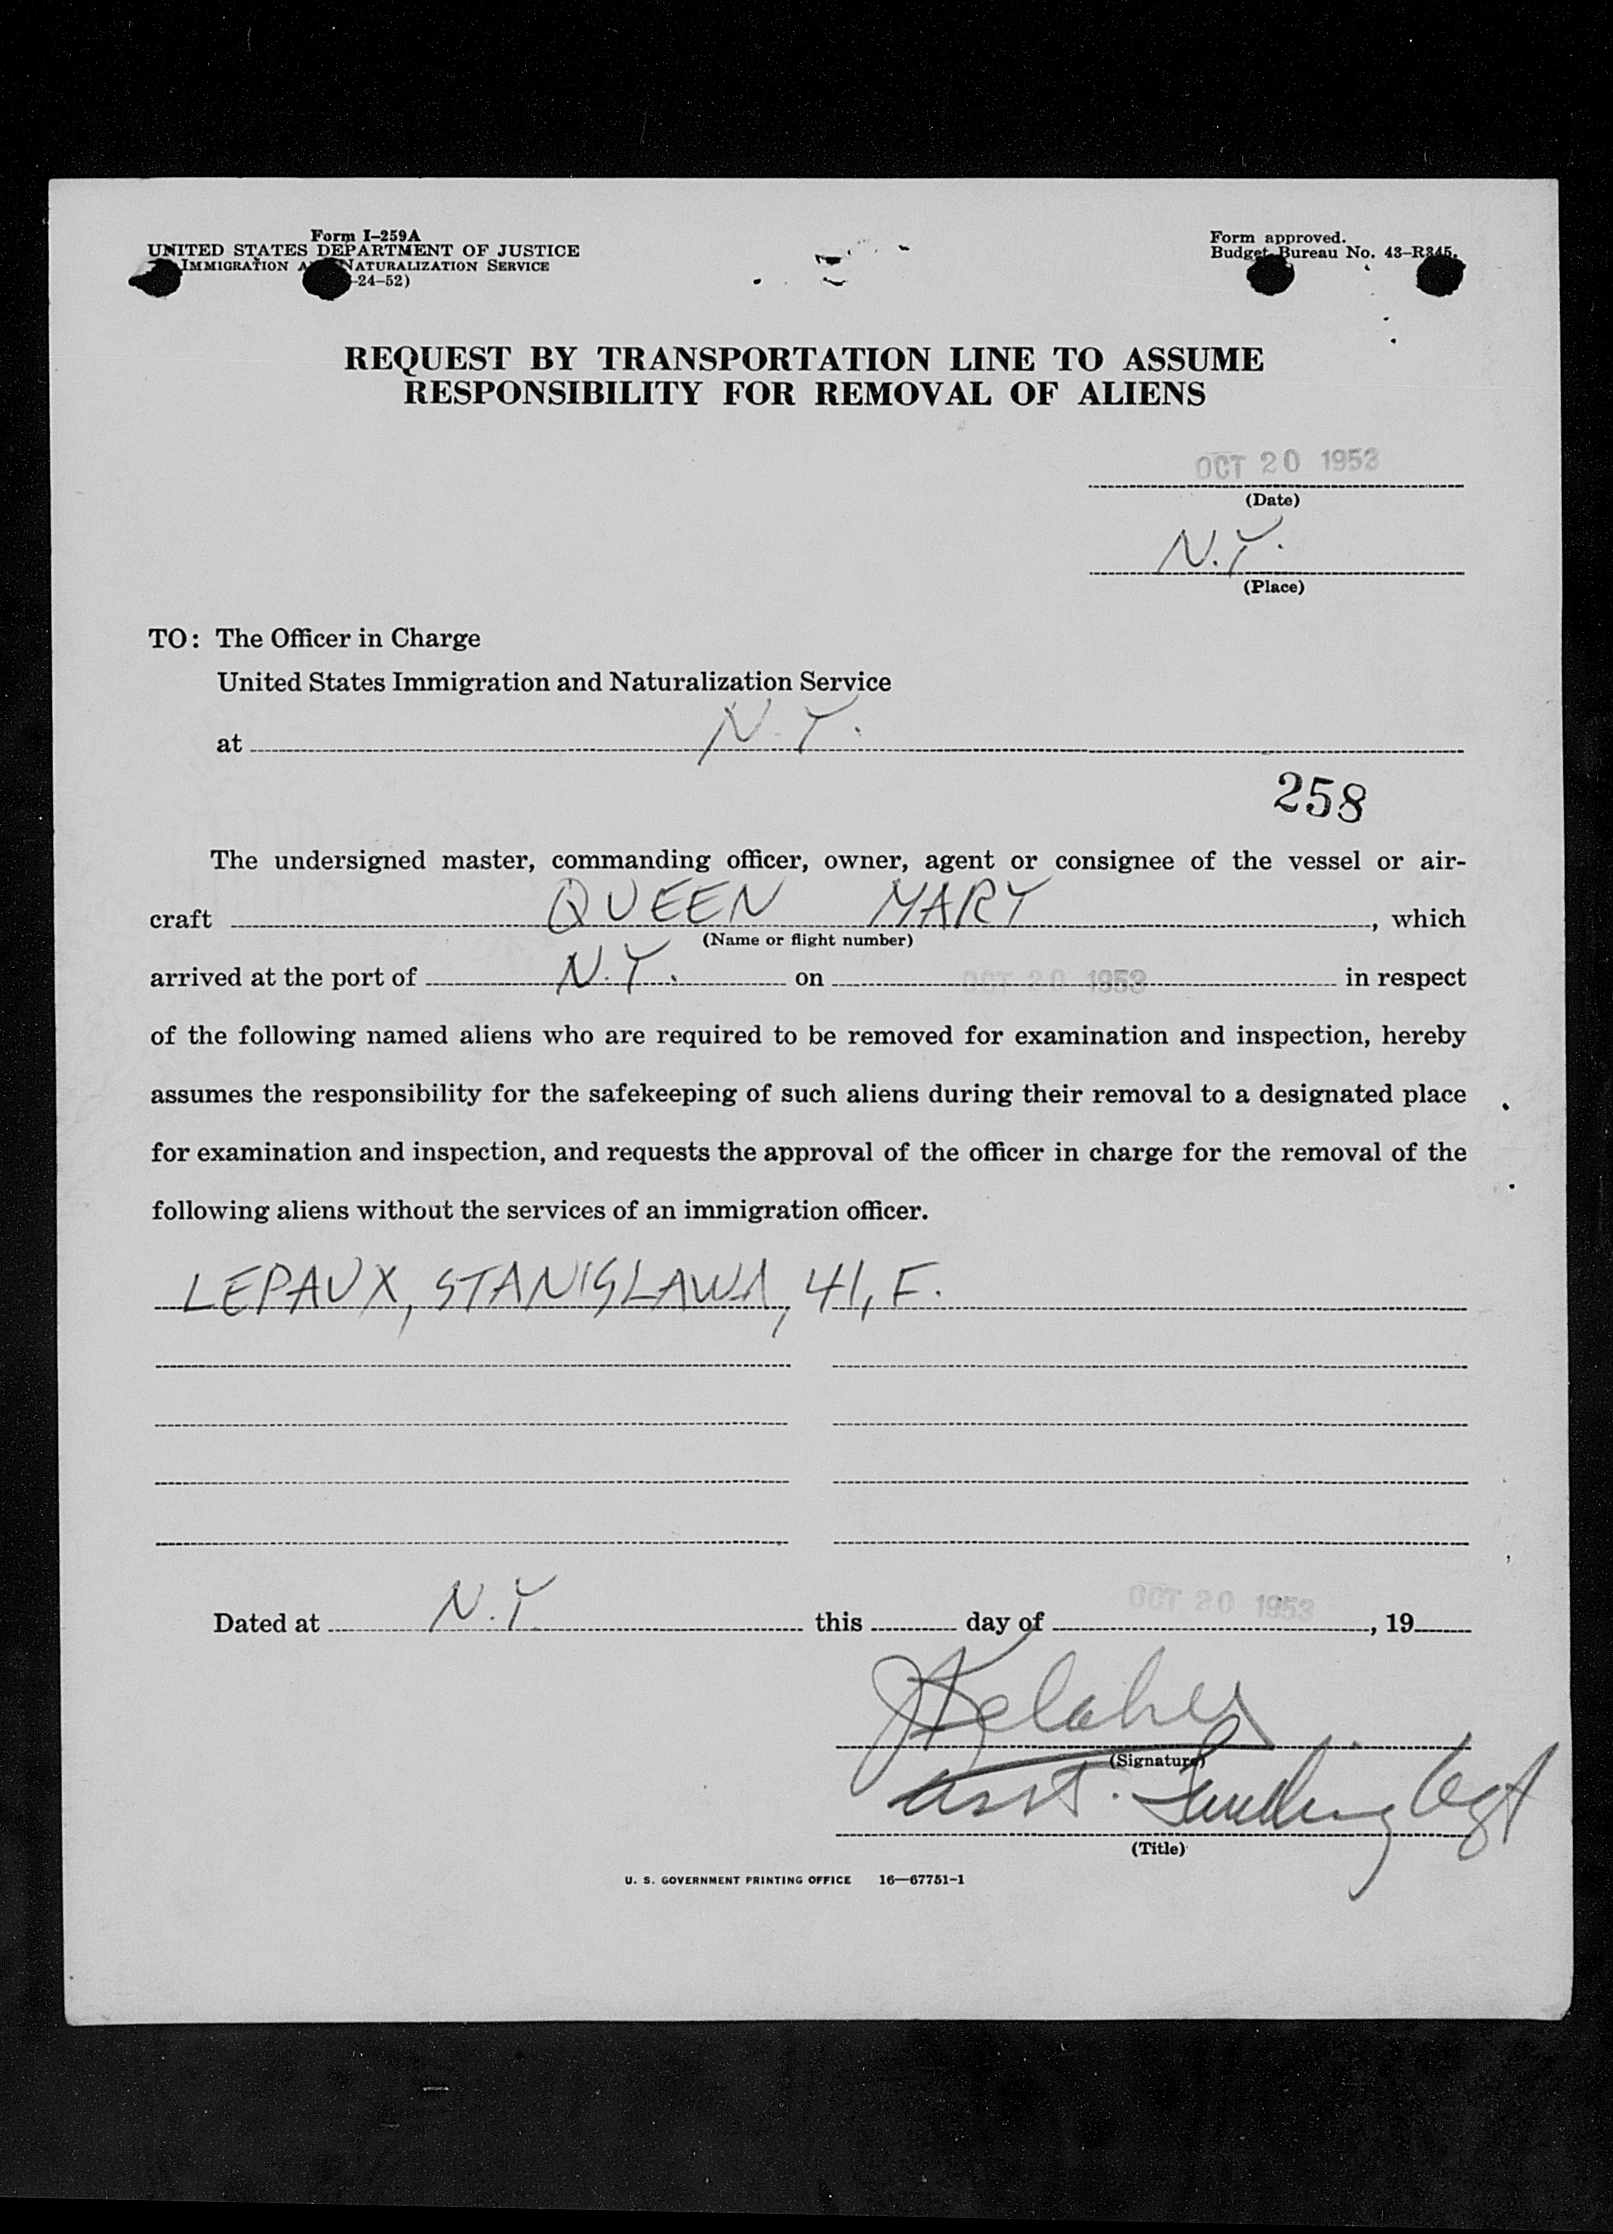 Form I-259A
UNITED STATES DEPARTMENT OF JUSTICE
IMMIGRATION NATURALIZATION SERVICE
-24-52)
Form approved.
Budget Bureau No. 43-R345.
REQUEST BY TRANSPORTATION LINE TO ASSUME
RESPONSIBILITY FOR REMOVAL OF ALIENS
OCT 20 1953
(Date)
N.Y.
(Place)
TO: The Officer in Charge
United States Immigration and Naturalization Service
at N.Y.
258
The undersigned master, commanding officer, owner, agent or consignee of the vessel or air-
craft QUEEN MARY, which
(Name or flight number)
arrived at the port of N.Y. on OCT 20 1953 in respect
of the following named aliens who are required to be removed for examination and inspection, hereby
assumes the responsibility for the safekeeping of such aliens during their removal to a designated place
for examination and inspection, and requests the approval of the officer in charge for the removal of the
following aliens without the services of an immigration officer.
LEPAUX, STANISLAWA, 41, F.
Dated at N.Y. this day of OCT 20 1953, 19
(Signature)
asst.
(Title)
U. S. GOVERNMENT PRINTING OFFICE 16—67751-1